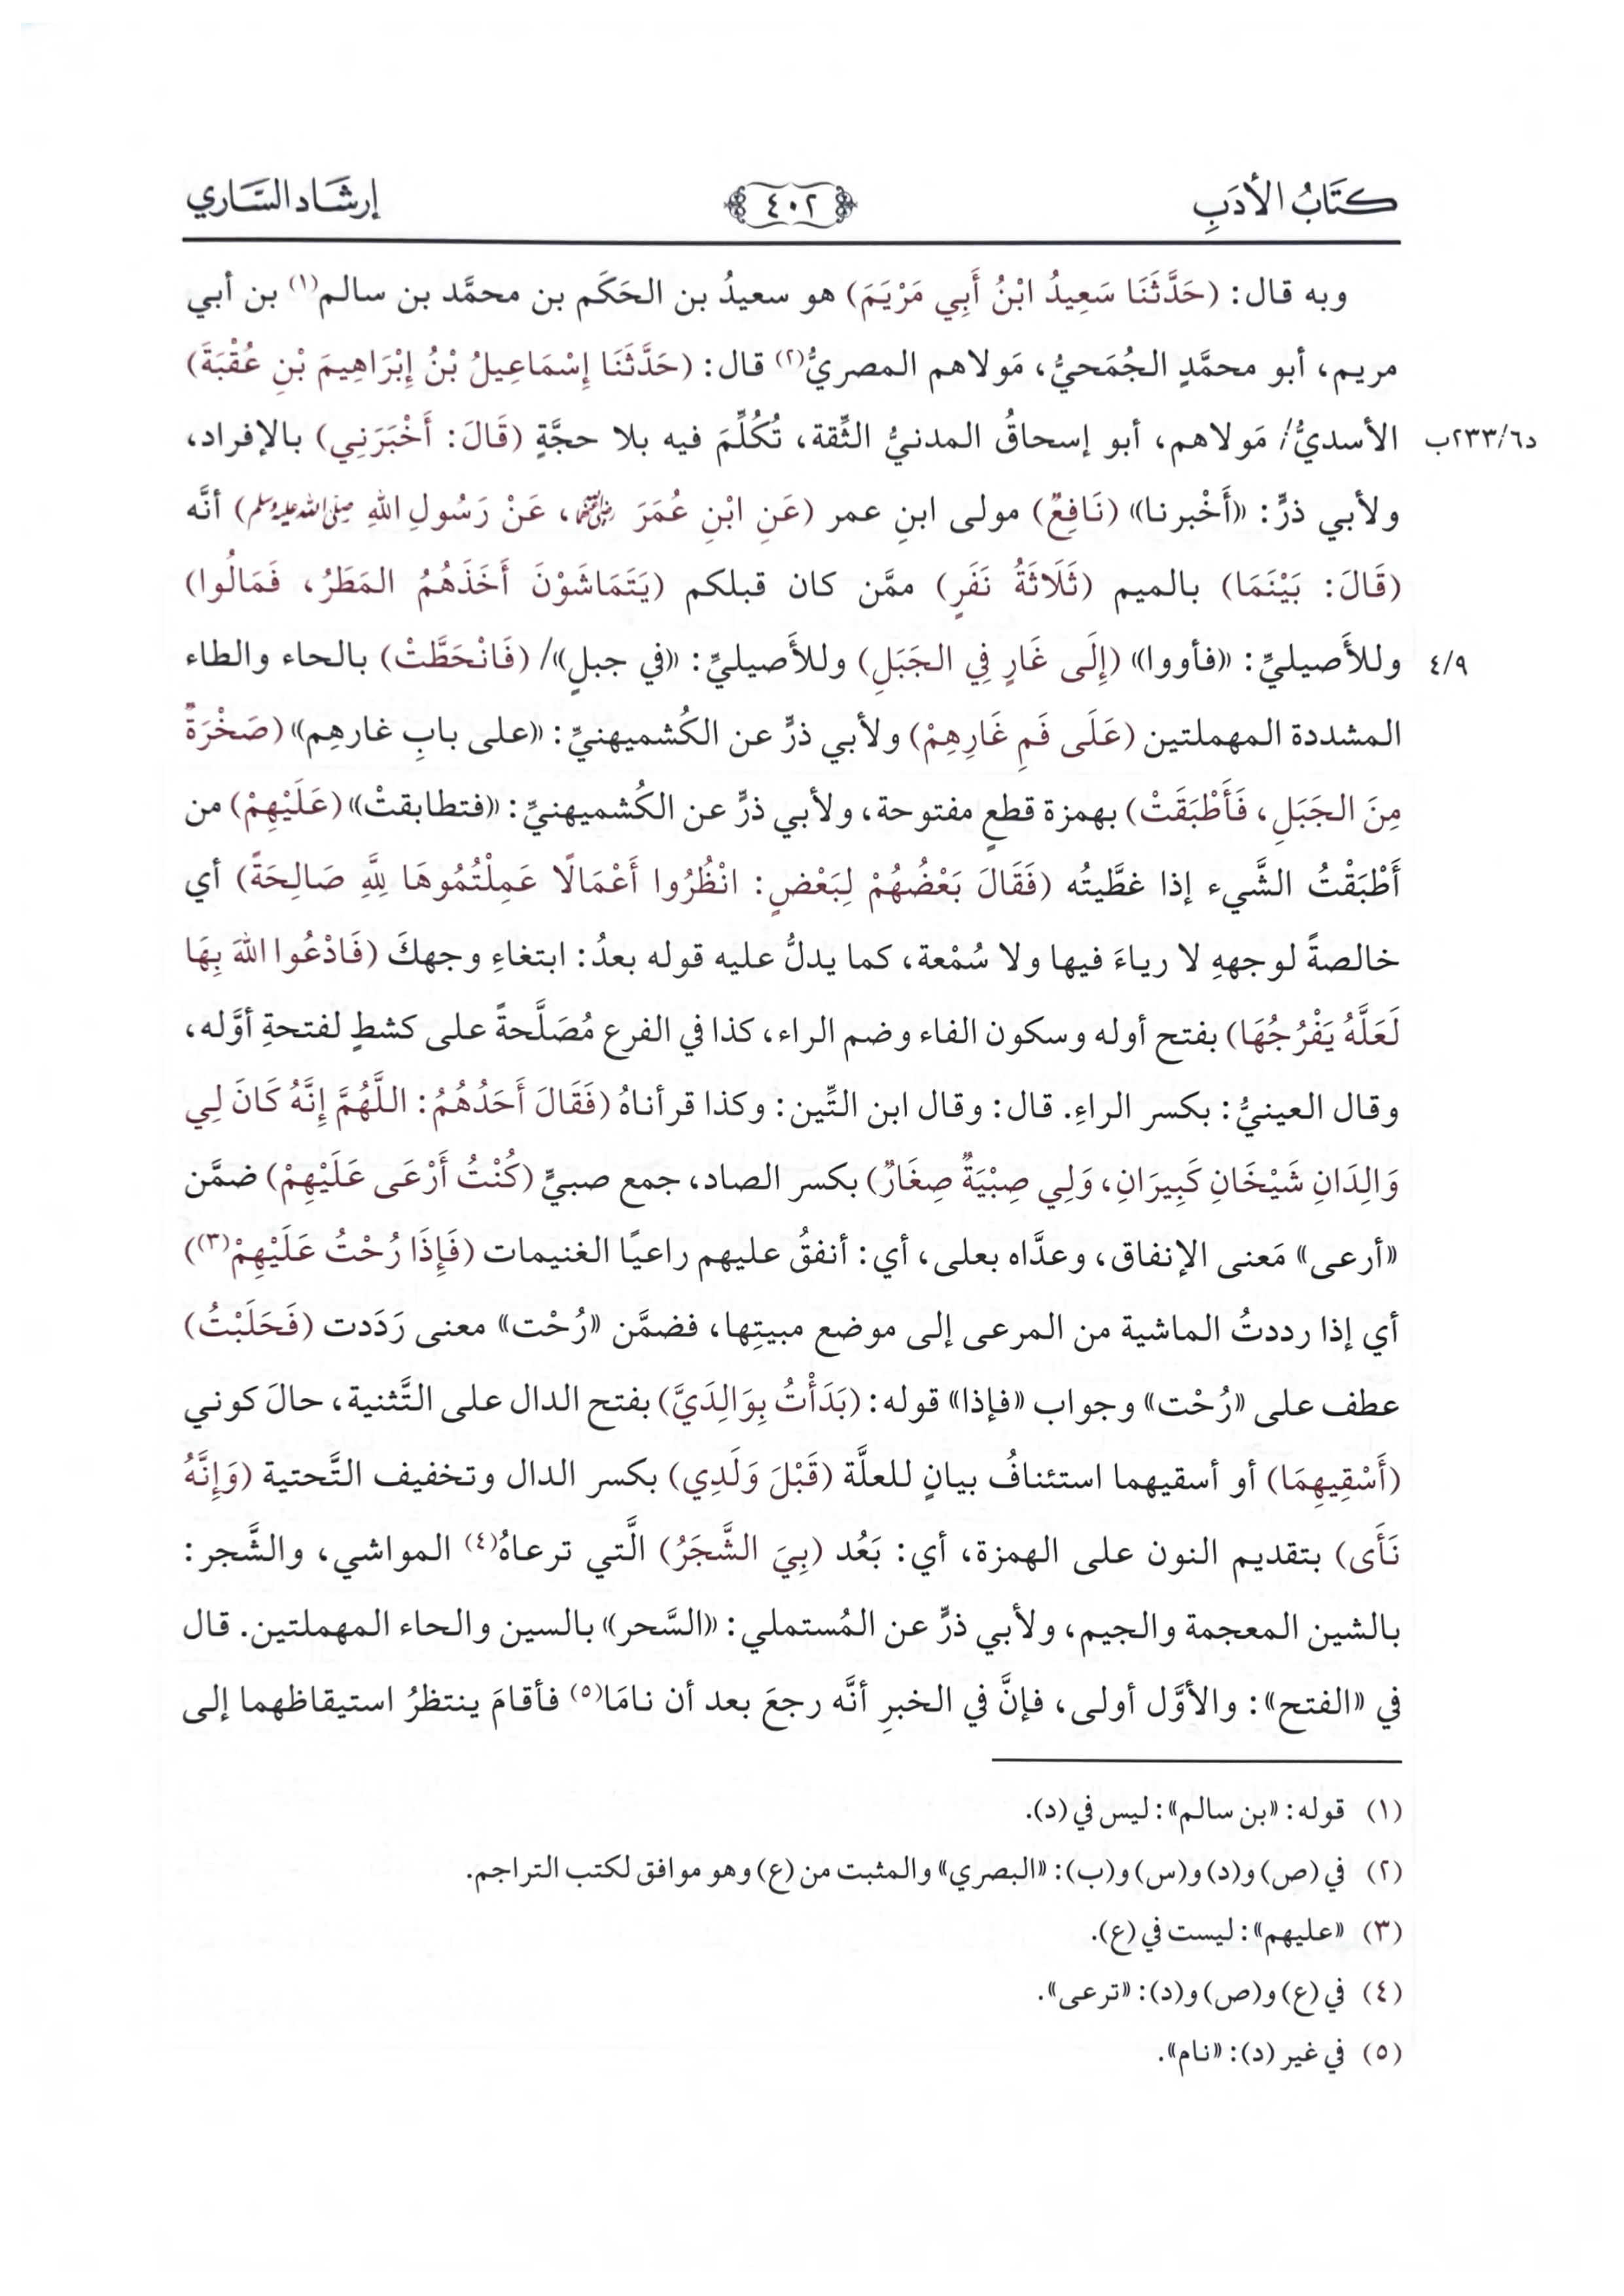 كتَابُ الأدَبِ ٤٠٢ إرشَاد السَّاري
وبه قال: (حَدَّثَنَا سَعِيدُ ابْنُ أَبِي مَرْيَمَ) هو سعيدُ بن الحَكَم بن محمَّد بن سالم(١) بن أبي
مريم، أبو محمَّدٍ الجُمَحيُّ، مَولاهم المصريُّ(٢) قال: (حَدَّثَنَا إِسْمَاعِيلُ بْنُ إِبْرَاهِيمَ بْنِ عُقْبَةَ)
د٢٣٣/٦ب الأسديُّ/ مَولاهم، أبو إسحاقُ المدنيُّ الثِّقة، تُكُلِّمَ فيه بلا حجَّةٍ (قَالَ: أَخْبَرَنِي) بالإفراد،
ولأبي ذرٍّ: «أَخْبرنا» (نَافِعٌ) مولى ابنِ عمر (عَنِ ابْنِ عُمَرَ رضي الله عنهما، عَنْ رَسُولِ اللهِ صلى الله عليه وسلم) أنَّه
(قَالَ: بَيْنَمَا) بالميم (ثَلَاثَةُ نَفَرٍ) ممَّن كان قبلكم (يَتَمَاشَوْنَ أَخَذَهُمُ المَطَرُ، فَمَالُوا)
٤/٩ وللأَصيليِّ: «فأووا» (إِلَى غَارٍ فِي الجَبَلِ) وللأَصيليِّ: «في جبلٍ»/ (فَانْحَطَّتْ) بالحاء والطاء
المشددة المهملتين (عَلَى فَمِ غَارِهِمْ) ولأبي ذرٍّ عن الكُشميهنيِّ: «على بابِ غارهِم» (صَخْرَةٌ
مِنَ الجَبَلِ، فَأَطْبَقَتْ) بهمزة قطعٍ مفتوحة، ولأبي ذرٍّ عن الكُشميهنيِّ: «فتطابقتْ» (عَلَيْهِمْ) من
أَطْبَقْتُ الشَّيء إذا غطَّيتُه (فَقَالَ بَعْضُهُمْ لِبَعْضٍ: انْظُرُوا أَعْمَالًا عَمِلْتُمُوهَا لِلَّهِ صَالِحَةً) أي
خالصةً لوجههِ لا رياءَ فيها ولا سُمْعة، كما يدلُّ عليه قوله بعدُ: ابتغاءِ وجهكَ (فَادْعُوا اللهَ بِهَا
لَعَلَّهُ يَفْرُجُهَا) بفتح أوله وسكون الفاء وضم الراء، كذا في الفرع مُصَلَّحةً على كشطٍ لفتحةِ أوَّله،
وقال العينيُّ: بكسر الراءِ. قال: وقال ابن التِّين: وكذا قرأناهُ (فَقَالَ أَحَدُهُمُ: اللَّهُمَّ إِنَّهُ كَانَ لِي
وَالِدَانِ شَيْخَانِ كَبِيرَانِ، وَلِي صِبْيَةٌ صِغَارٌ) بكسر الصاد، جمع صبيٍّ (كُنْتُ أَرْعَى عَلَيْهِمْ) ضمَّن
«أرعى» مَعنى الإنفاق، وعدَّاه بعلى، أي: أنفقُ عليهم راعيًا الغنيمات (فَإِذَا رُحْتُ عَلَيْهِمْ(٣))
أي إذا رددتُ الماشية من المرعى إلى موضع مبيتِها، فضمَّن «رُحْت» معنى رَدَدت (فَحَلَبْتُ)
عطف على «رُحْت» وجواب «فإذا» قوله: (بَدَأْتُ بِوَالِدَيَّ) بفتح الدال على التَّثنية، حالَ كوني
(أَسْقِيهِمَا) أو أسقيهما استئنافُ بيانٍ للعلَّة (قَبْلَ وَلَدِي) بكسر الدال وتخفيف التَّحتية (وَإِنَّهُ
نَأَى) بتقديم النون على الهمزة، أي: بَعُد (بِيَ الشَّجَرُ) الَّتي ترعاهُ(٤) المواشي، والشَّجر:
بالشين المعجمة والجيم، ولأبي ذرٍّ عن المُستملي: «السَّحر» بالسين والحاء المهملتين. قال
في «الفتح»: والأوَّل أولى، فإنَّ في الخبرِ أنَّه رجعَ بعد أن نامَا(٥) فأقامَ ينتظرُ استيقاظهما إلى
(١) قوله: «بن سالم»: ليس في (د).
(٢) في (ص) و(د) و(س) و(ب): «البصري» والمثبت من (ع) وهو موافق لكتب التراجم.
(٣) «عليهم»: ليست في (ع).
(٤) في (ع) و(ص) و(د): «ترعى».
(٥) في غير (د): «نام».